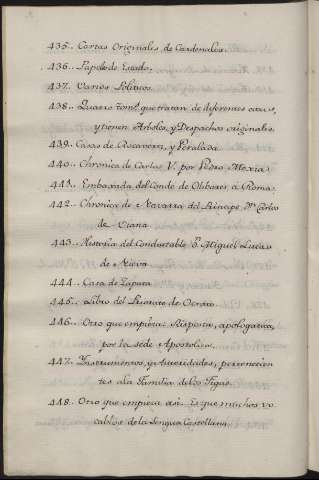 435.. Cartas Originales de Cardenales.
436.. Papeles de Estado.
437.. Varios Politicos.
438.. Quatro tom.s que tratan de diferentes cosas,
y tienen Arboles, y Despachos originales.
439.. Casas de Rocaverti, y Peralada.
440.. Chronica de Carlos V. por Pedro Mexia.
441.. Embaxada del Conde de Olibares, á Roma.
442.. Chronica de Navarra del Principe Dn. Carlos
de Viana.
443.. Historia del Condestable D. Miguel Lucas
de Nieva
444.. Casa de Zapata.
445.. Libro del Priorato de Ocrato.
446.. Otro que empieza: Responsio, apologatica,
por la sede Apostolica.
447.. Instrumentos, y Autoridades, pertenecien
tes ala Familia delos Jigas.
448.. Otro que empieza asi. Es que muchos vo
cablos de la Lengua Castellana.